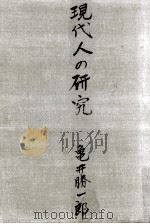 現代人の研究
亀井勝一郎